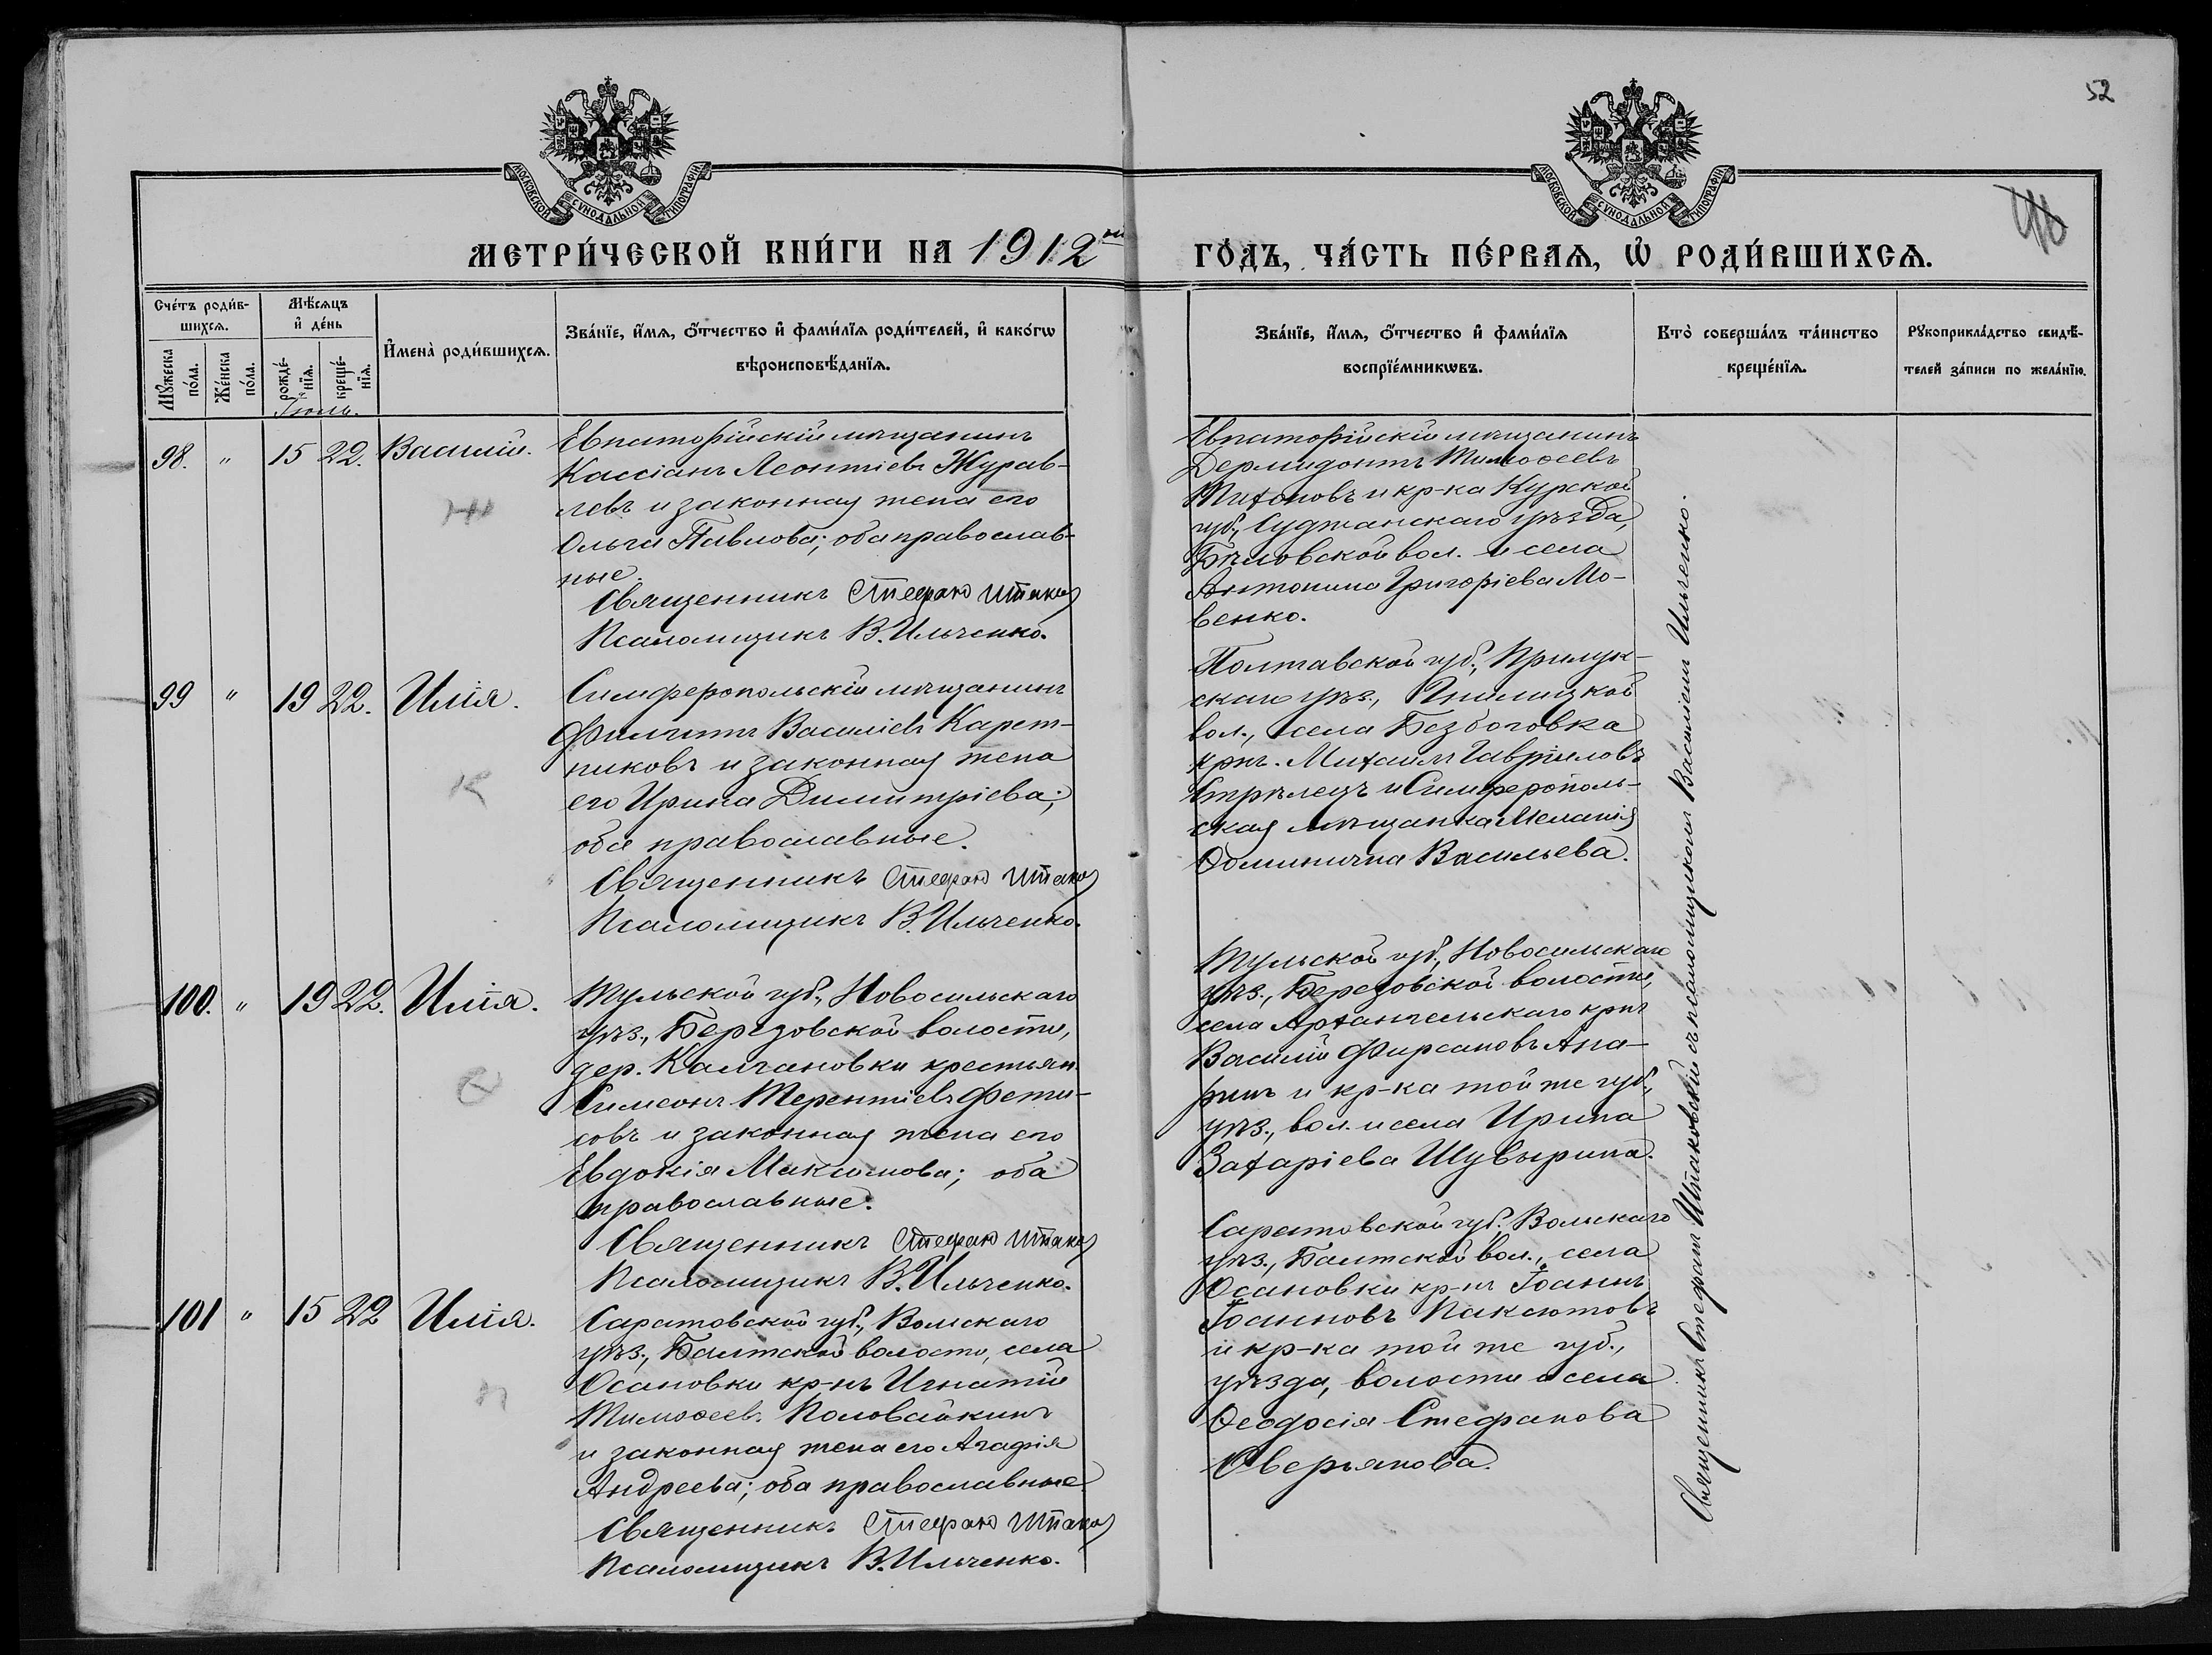 52
МОСКОВСКОЙ СѴНОДАЛЬНОЙ ТИПОГРАФІИ
МОСКОВСКОЙ СѴНОДАЛЬНОЙ ТИПОГРАФІИ
МЕТРИ́ЧЕСКОЙ КНИ́ГИ НА 1912 ый
ГО́ДЪ, ЧА́СТЬ ПЕ́РВАѦ, Ѡ҆ РОДИ́ВШИХСѦ.
Сче́тъ роди́в-
шихсѧ.
Мꙋ́жеска по́ла.
Же́нска по́ла.
Мѣ́сѧцъ
и҆ де́нь
рожде́-
нїѧ.
креще́-
нїѧ.
И҆мена̀ роди́вшихсѧ.
Зва́нїе, и҆́мѧ, ѻ҆́тчество и҆ фами́лїѧ роди́телей, и҆ како́гѡ
вѣроисповѣ́данїѧ.
Зва́нїе, и҆́мѧ, ѻ҆́тчество и҆ фами́лїѧ
воспрїе́мникѡвъ.
Кто̀ соверша́лъ та́инство
креще́нїѧ.
Рꙋкоприкла́дство свидѣ́-
телей за́писи по жела́нїю.
Іюль.
98. " 15 22. Василій.
Евпаторійскій мѣщанинъ
Кассіанъ Леонтіевъ Журав-
левъ и законная жена его
Ольга Павлова; оба православ-
ные.
Священникъ Стефанъ Штак
Псаломщикъ В. Ильченко.
Евпаторійскій мѣщанинъ
Дермидонтъ Тимоѳеевъ
Тихоновъ и кр-ка Курской
губ., Суджанскаго уѣзда,
Бѣловской вол. и села
Антонина Григоріева Мо-
венко.
99 " 19 22. Илія.
Симферопольскій мѣщанинъ
Филиппъ Василіевъ Карет-
никовъ и законная жена
его Ирина Димитріева;
оба православные.
Священникъ Стефанъ Штак
Псаломщикъ В. Ильченко.
Полтавской губ., Прилук-
скаго уѣз.,
вол., села Безбоговка
крнъ. Михаилъ Гавріиловъ
Стрѣлецъ и Симферополь-
ская мѣщанка Меланія
Васильева.
100. " 19 22. Илія.
Тульской губ., Новосильскаго
уѣз., Березовской волости,
дер. Калгановки крестьян.
Симеонъ Терентіевъ Фети-
совъ и законная жена его
Евдокія Максимова; оба
православные.
Священникъ Стефанъ Штак
Псаломщикъ В. Ильченко.
Тульской губ., Новосильскаго
уѣз., Березовской волости,
села Архангельскаго крнъ
Василій Фирсановъ Апа-
ринъ и кр-ка той же губ.,
уѣз., вол. и села Ирина
Захаріева Шувырина.
101 " 15 22 Илія.
Саратовской губ., Вольскаго
уѣз., Балтской волости, села
Осановки кр-нъ Игнатій
Тимоѳеевъ Половайкинъ
и законная жена его Агафія
Андреева; оба православные.
Священникъ Стефанъ Штак
Псаломщикъ В. Ильченко.
Саратовской губ. Вольскаго
уѣз., Балтской вол., села
Осановки кр-нъ Іоаннъ
Іоанновъ Паксютовъ
и кр-ка той же губ.,
уѣзда, волости и села
Ѳеодосія Стефанова
Оверьянова.
Священникъ Стефанъ Штаковскій съ псаломщикомъ Василіемъ Ильченко.
Ж
К
Ф
П